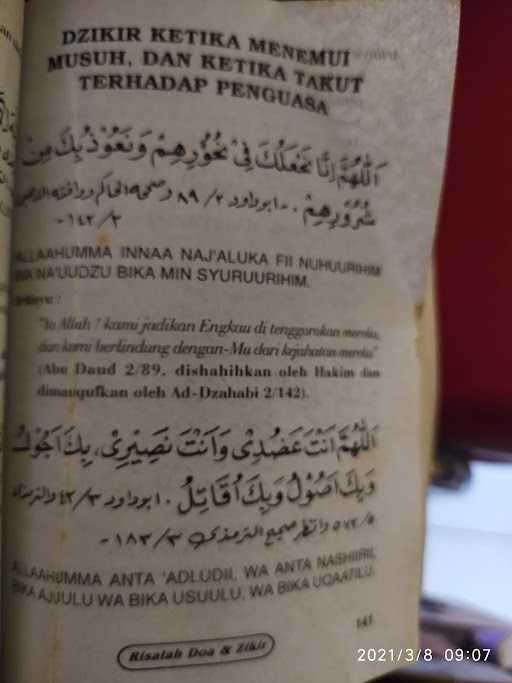 DZIKIR KETIKA MENEMUI
MUSUH, DAN KETIKA TAKUT
TERHADAP PENGUASA
اَللّٰهُمَّ اِنَّا نَجْعَلُكَ فِيْ نُحُوْرِهِمْ وَنَعُوْذُ بِكَ مِنْ
شُرُوْرِهِمْ . - ابوداود ٢/ ٨٩ وصححه الحاكم ووافقه الذهبي
٢/ ١٤٢ -
ALLAAHUMMA INNAA NAJ'ALUKA FII NUHUURIHIM
WA NA'UUDZU BIKA MIN SYURUURIHIM.
Artinya :
"Ya Allah ! kami jadikan Engkau di tenggorokan mereka,
dan kami berlindung dengan-Mu dari kejahatan mereka"
(Abu Daud 2/89, dishahihkan oleh Hakim dan
dimauqufkan oleh Ad-Dzahabi 2/142).
اَللّٰهُمَّ اَنْتَ عَضُدِيْ وَاَنْتَ نَصِيْرِيْ، بِكَ اَجُوْلُ
وَبِكَ اَصُوْلُ وَبِكَ اُقَاتِلُ . ابوداود ٣/ ٤٢ والترمذي
٥/ ٥٧٢ وانظر صحيح الترمذي ٣/ ١٨٣ -
ALLAAHUMMA ANTA 'ADLUDII, WA ANTA NASHIIRII,
BIKA AJUULU WA BIKA USUULU, WA BIKA UQAATILU.
Risalah Doa & Zikir
2021/3/8 09:07